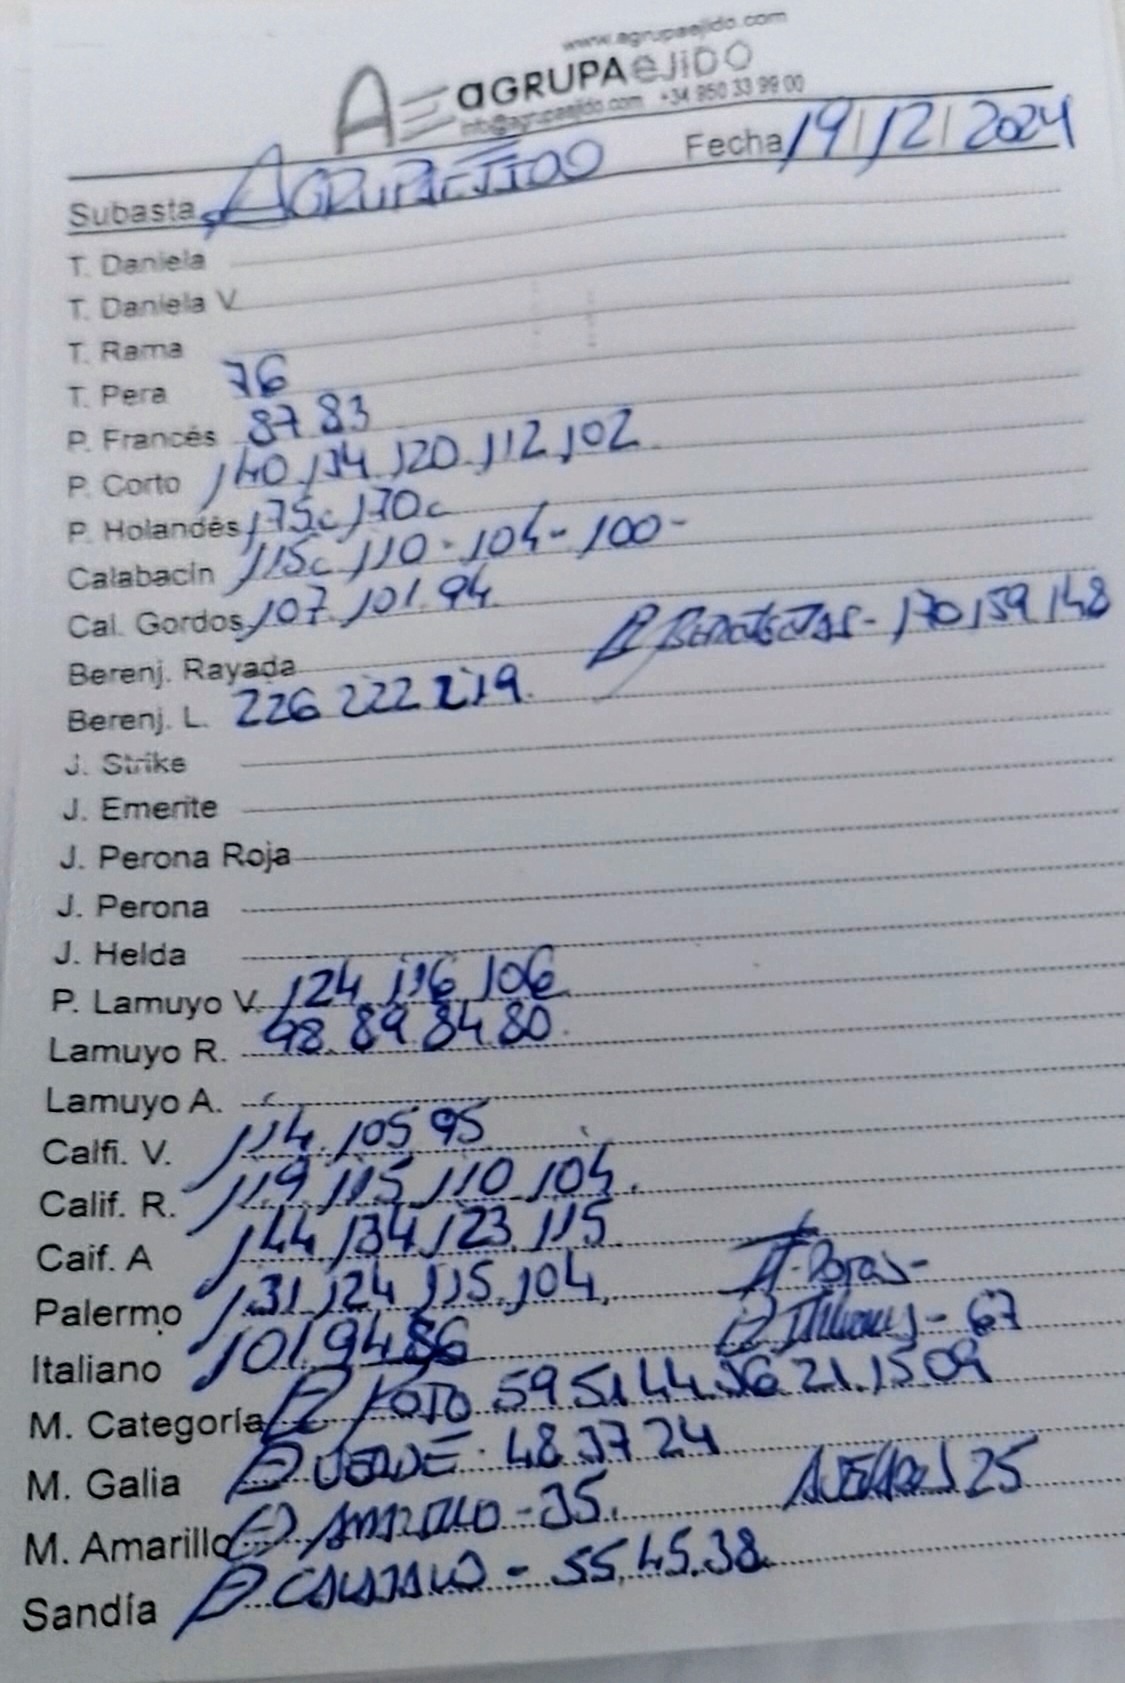 www.agrupaejido.com
AE aGRUPAEJIDO
info@agrupaejido.com +34 950 33 99 00
Subasta AGRUPAEJIDO Fecha 19/12/2024
T. Daniela
T. Daniela V
T. Rama
T. Pera 76
P. Francés 87 83
P. Corto 140 134 120 112 102
P. Holandés 175c 170c
Calabacín 115c 110 - 104 - 100 -
Cal. Gordos 107 101 94
Berenj. Rayada - 170 159 148
Berenj. L. 226 222 219.
J. Strike
J. Emerite
J. Perona Roja
J. Perona
J. Helda
P. Lamuyo V. 124 116 106
Lamuyo R. 98. 89 84 80.
Lamuyo A.
Calfi. V. 114. 105 95
Calif. R. 119 115 110 104.
Caif. A 144 134 123. 115
Palermo 131 124 115. 104.
Italiano 101. 94 86 - 67
M. Categoría ROJO 59 51 44 36 21. 15 09
M. Galia VERDE. 48 37 24
M. Amarillo AMARILLO - 35. 25
Sandía - 55. 45. 38.